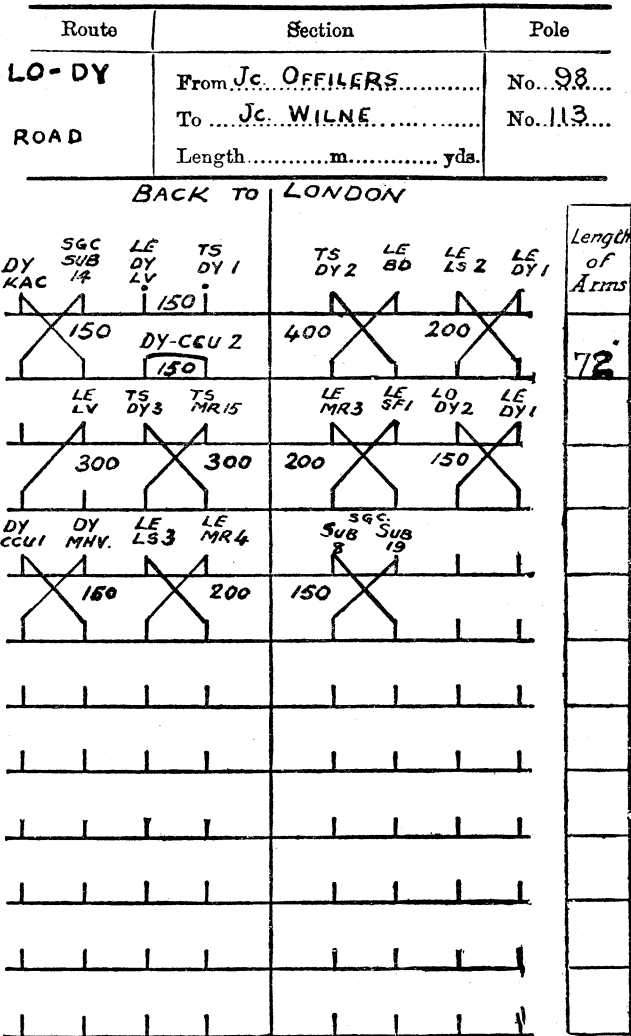 Route Section Pole
LO-DY From Jc. OFFILERS No. 98
ROAD To Jc. WILNE No. 113
Length m. yds.
BACK TO LONDON
Length of Arms
DY KAC SGC SUB 14 LE DY LV TS DY 1 TS DY 2 LE BD LE LS 2 LE DY 1
150 150 400 200
DY-CCU 2
150 72"
LE LV TS DY3 TS MR15 LE MR3 LE SF1 LO DY2 LE DY1
300 300 200 150
DY CCU1 DY MHV. LE LS3 LE MR4 SGC. SUB 8 SUB 19
150 200 150